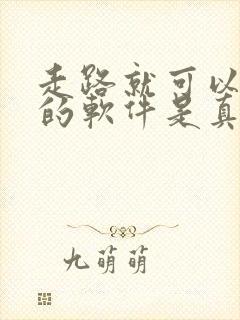 走路就可以
的軟件是真
九萌萌